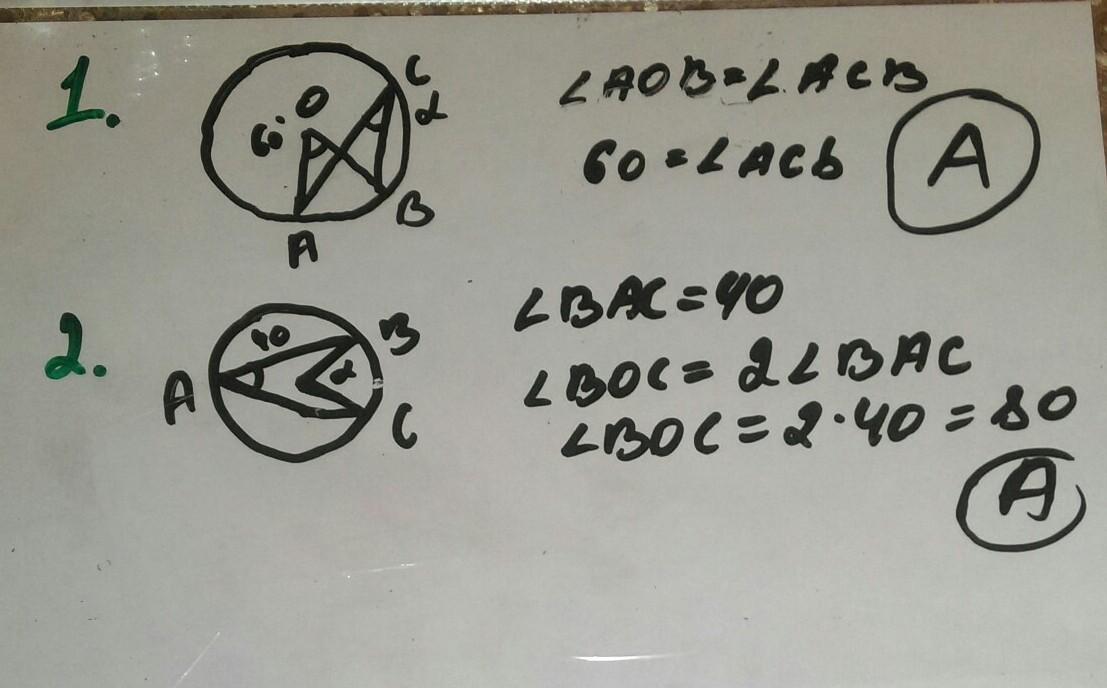 1.
C
α
O
60°
B
A
∠AOB=∠ACB
60=∠ACb
A
2.
40
B
A
α
C
∠BAC=40
∠BOC=2∠BAC
∠BOC=2·40=80
A